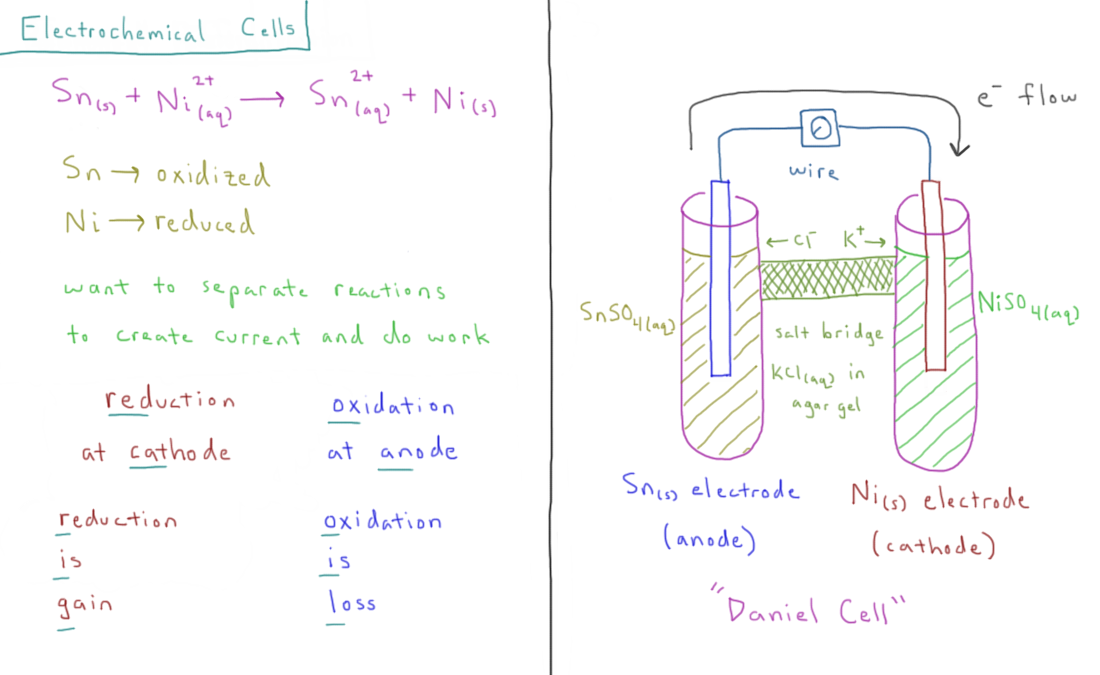 Electrochemical Cells
Sn(s) + Ni²⁺(aq) → Sn²⁺(aq) + Ni(s)
Sn → oxidized
Ni → reduced
want to separate reactions
to create current and do work
reduction
at cathode
oxidation
at anode
reduction
is
gain
oxidation
is
loss
e⁻ flow
wire
← Cl⁻ K⁺ →
SnSO₄(aq)
NiSO₄(aq)
salt bridge
KCl(aq) in
agar gel
Sn(s) electrode
(anode)
Ni(s) electrode
(cathode)
"Daniel Cell"